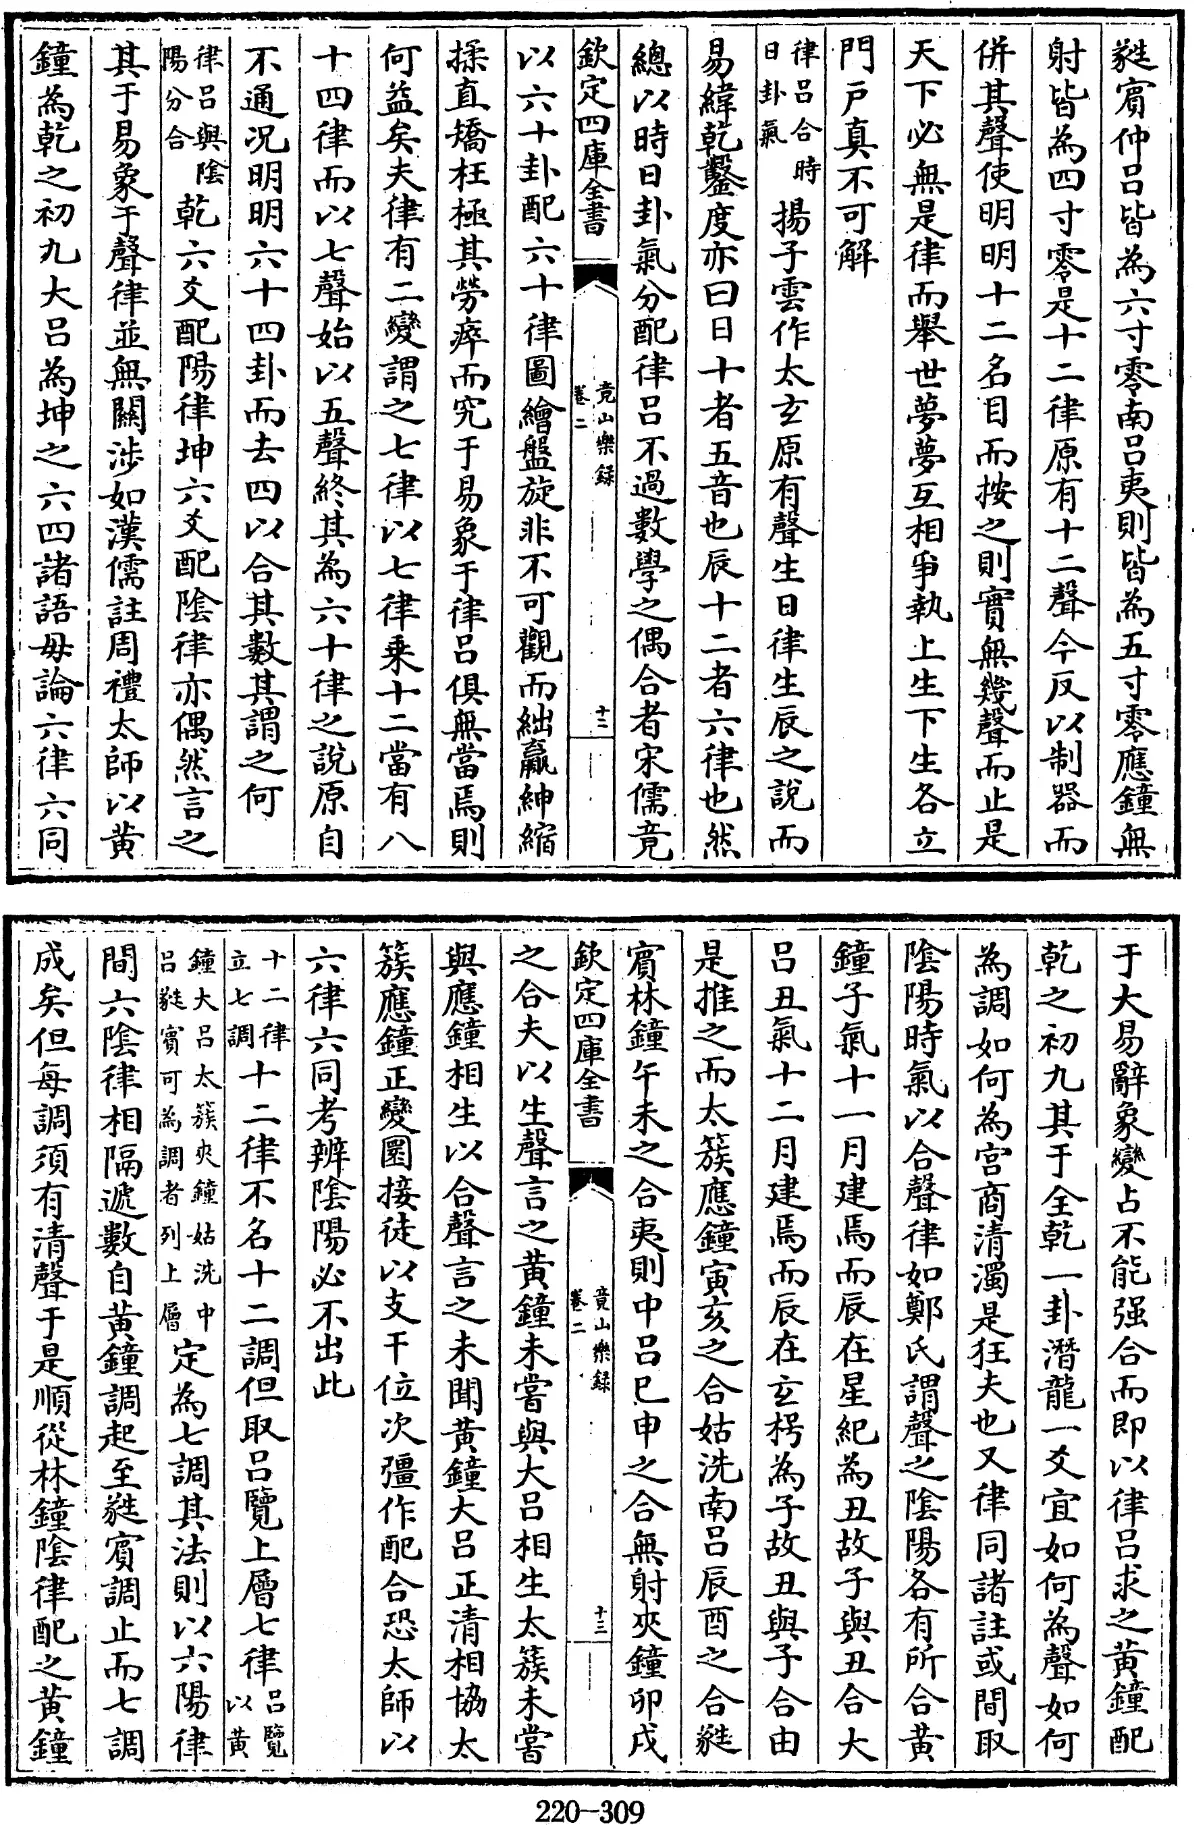 蕤賓仲呂皆為六寸零南呂夷則皆為五寸零應鐘無
射皆為四寸零是十二律原有十二聲今反以制器而
併其聲使明明十二名目而按之則實無幾聲而止是
天下必無是律而舉世夢夢互相爭執上生下生各立
門戶真不可解
律呂合時
日卦氣
揚子雲作太玄原有聲生日律生辰之說而
易緯乾鑿度亦曰日十者五音也辰十二者六律也然
總以時日卦氣分配律呂不過數學之偶合者宋儒竟
欽定四庫全書
竟山樂錄
卷二
十二
以六十卦配六十律圖繪盤旋非不可觀而絀羸紳縮
揉直矯枉極其勞瘁而究于易象于律呂俱無當焉則
何益矣夫律有二變謂之七律以七律乘十二當有八
十四律而以七聲始以五聲終其為六十律之說原自
不通况明明六十四卦而去四以合其數其謂之何
律呂與陰
陽分合
乾六爻配陽律坤六爻配陰律亦偶然言之
其于易象于聲律並無關涉如漢儒註周禮太師以黃
鐘為乾之初九大呂為坤之六四諸語毋論六律六同
于大易辭象變占不能强合而即以律呂求之黃鐘配
乾之初九其于全乾一卦潛龍一爻宜如何為聲如何
為調如何為宮商清濁是狂夫也又律同諸註或間取
陰陽時氣以合聲律如鄭氏謂聲之陰陽各有所合黃
鐘子氣十一月建焉而辰在星紀為丑故子與丑合大
呂丑氣十二月建焉而辰在玄枵為子故丑與子合由
是推之而太簇應鐘寅亥之合姑洗南呂辰酉之合蕤
賓林鐘午未之合夷則中呂巳申之合無射夾鐘卯戌
欽定四庫全書
竟山樂錄
卷二
十三
之合夫以生聲言之黃鐘未嘗與大呂相生太簇未嘗
與應鐘相生以合聲言之未聞黃鐘大呂正清相協太
簇應鐘正變圜接徒以支干位次彊作配合恐太師以
六律六同考辨陰陽必不出此
十二律
立七調
十二律不名十二調但取呂覽上層七律
呂覽
以黃
鐘大呂太簇夾鐘姑洗中
呂蕤賓可為調者列上層
定為七調其法則以六陽律
間六陰律相隔遞數自黃鐘調起至蕤賓調止而七調
成矣但每調須有清聲于是順從林鐘陰律配之黃鐘
220-309